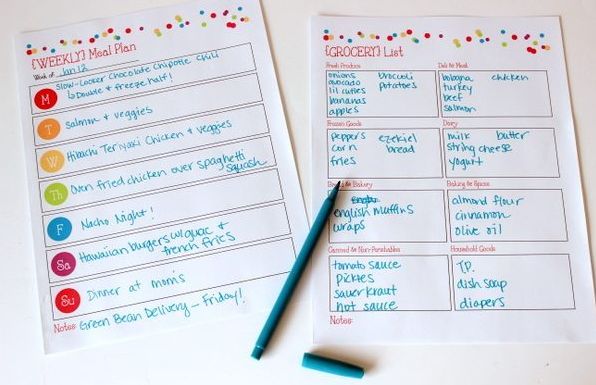 {WEEKLY} Meal Plan
Week of Jan 12
M
Slow-Cooker Chocolate Chipotle Chili
↳ Double & freeze half!
T
Salmon & veggies
W
Hibachi Teriyaki Chicken & veggies
Th
Oven fried chicken over spaghetti
squash
F
Nacho Night!
Sa
Hawaiian burgers w/guac &
french fries
Su
Dinner at mom's
Notes: Green Bean Delivery - Friday!
{GROCERY} List
Fresh Produce
onions broccoli
avocado potatoes
lil cuties
bananas
apples
Deli & Meat
bologna chicken
turkey
beef
salmon
Frozen Goods
peppers ezekiel
corn bread
fries
Dairy
milk butter
string cheese
yogurt
Bread & Bakery
english muffins
wraps
Baking & Spices
almond flour
cinnamon
olive oil
Canned & Non-Perishables
tomato sauce
pickles
sauerkraut
hot sauce
Household Goods
T.P.
dish soap
diapers
Notes: